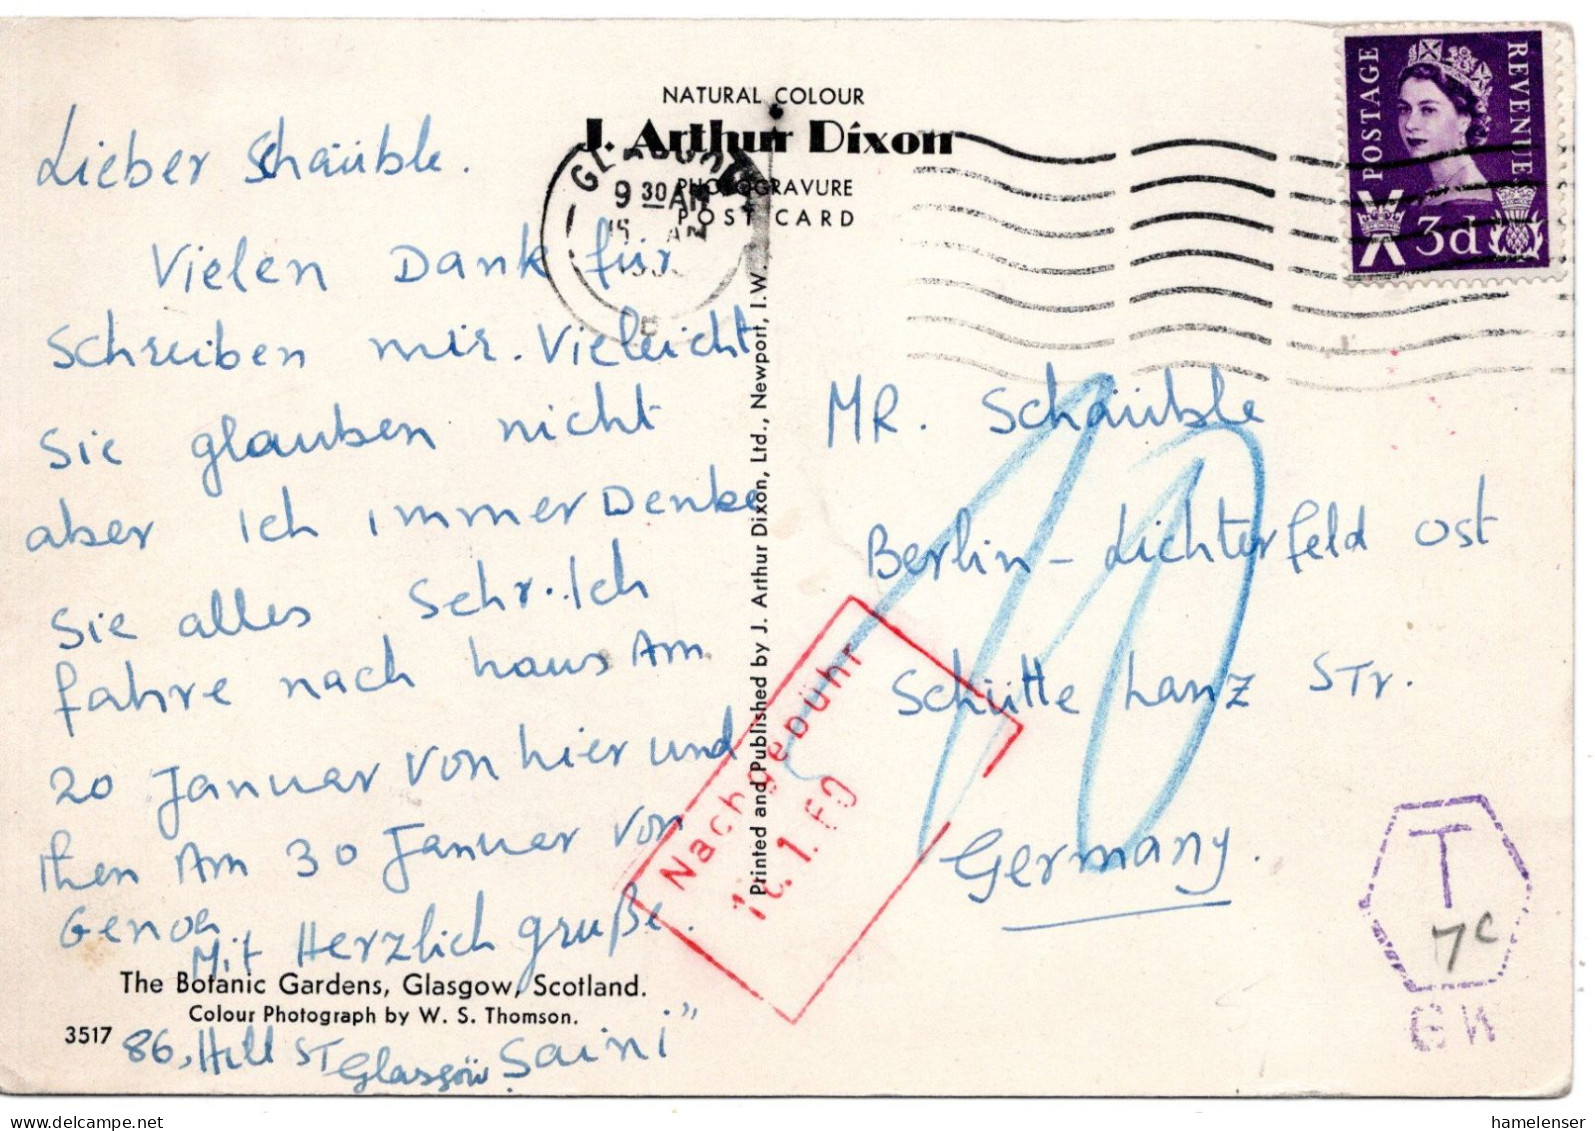 NATURAL COLOUR
J. Arthur Dixon
PHOTOGRAVURE
POST CARD
GLASGOW
9 30 AM
15 JAN
POSTAGE
REVENUE
3d
Lieber Schäuble.
Vielen Dank für
Schreiben mir. Vieleicht
Sie glauben nicht
aber ich immer Denke
Sie alles Sehr. Ich
fahre nach haus Am
20 Januar von hier und
then Am 30 Januar von
Genoa
Mit Herzlich gruße.
The Botanic Gardens, Glasgow, Scotland.
Colour Photograph by W. S. Thomson.
3517
86, Hill ST Glasgow Saini"
Printed and Published by J. Arthur Dixon, Ltd., Newport, I.W.
MR. Schäuble
Berlin - Lichterfeld Ost
Schütte Lanz STr.
Germany.
10
Nachgebühr
T
7c
GW
hamelenser
www.delcampe.net